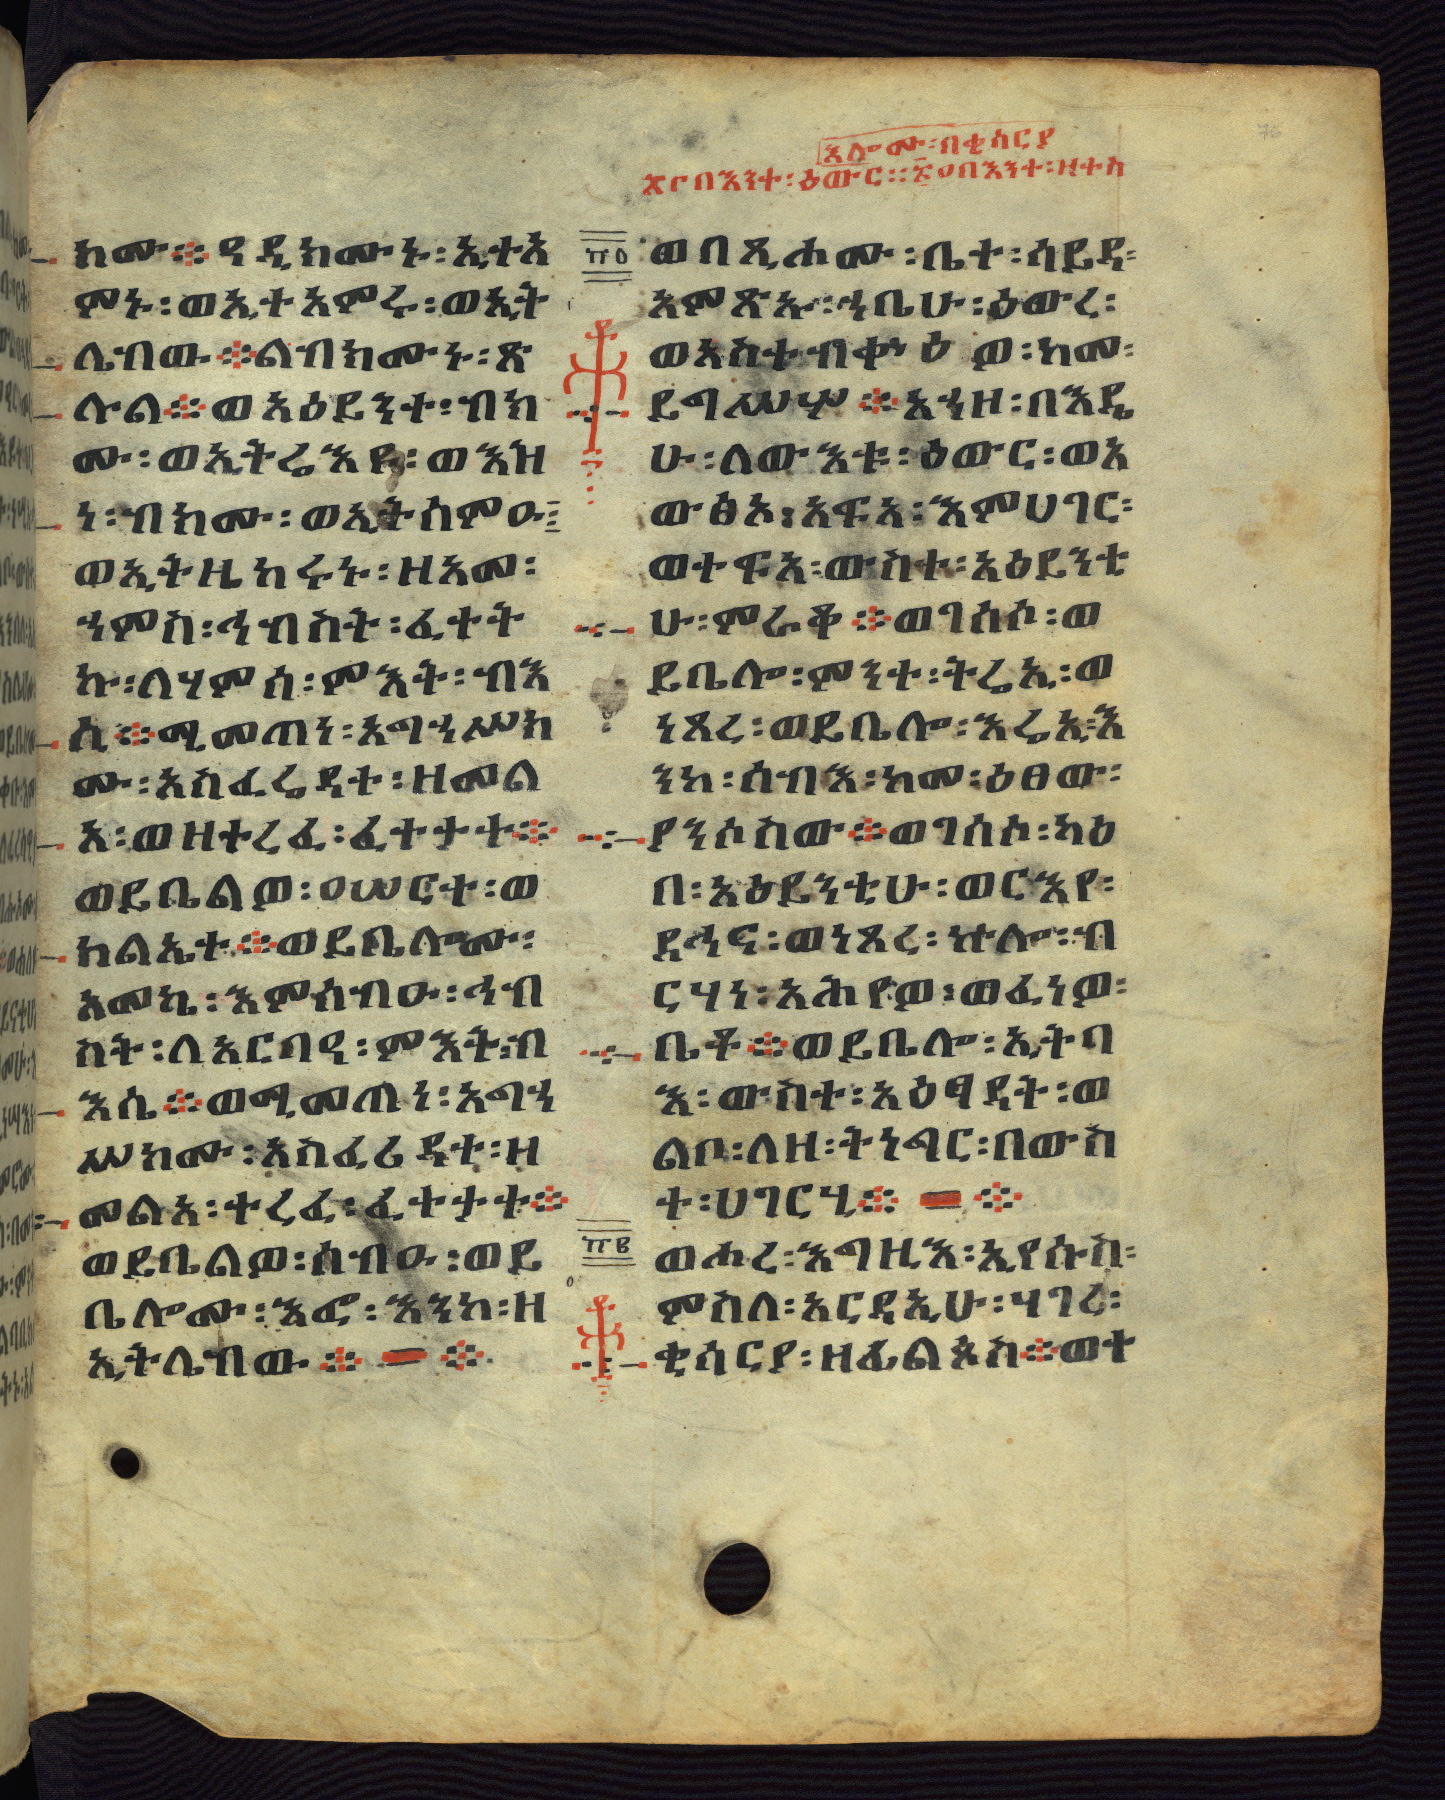 እሎሙ፡በቂሳርያ
፳ወበእንተ፡ዕውር።፳፩በእንተ፡ዘተስ
ክሙ፨ዓዲክሙኑ፡ኢተአ
ምኑ፡ወኢተአምሩ፡ወኢት
ሌብው፨ልብክሙኑ፡ጽ
ሉል፨ወአዕይንተ፡ብክ
ሙ፡ወኢትሬእዩ፡ወእዝ
ነ፡ብክሙ፡ወኢትሰምዑ፡
ወኢትዜከሩኑ፡ዘአመ፡
ኀምስ፡ኀብስት፡ፈተት
ኩ፡ለ፶ምስ፡ምእት፡ብእ
ሲ፨ሚመጠነ፡አግኀሥክ
ሙ፡አስፈሬዳተ፡ዘመል
አ፡ወዘተረፈ፡ፈተታተ፨
ወይቤልዎ፡ዐሠርተ፡ወ
ክልኤተ፨ወይቤሎሙ፡
አመኒ፡እምሰብዑ፡ኀብ
ስት፡ለአርባዓ፡ምእት፡ብ
እሲ፨ወሚመጠነ፡አግኀ
ሥክሙ፡አስፈሪዳተ፡ዘ
መልአ፡ተረፈ፡ፈተታተ፨
ወይቤልዎ፡ሰብዑ፡ወይ
ቤሎሙ፡እፎ፡እንከ፡ዘ
ኢትሌብው፨ ፨
፹፩
ወበጺሖሙ፡ቤተ፡ሳይዳ፡
አምጽኡ፡ኀቤሁ፡ዕውረ፡
ወአስተብቍዕዎ፡ከመ፡
ይግሥሦ፨እኂዘ፡በእዴ
ሁ፡ለውእቱ፡ዕውር፡ወአ
ውፅኦ፡አፍአ፡እምሀገር፡
ወተፍአ፡ውስተ፡አዕይንቲ
ሁ፡ምራቆ፨ወገሰሶ፡ወ
ይቤሎ፡ምንተ፡ትሬኢ፡ወ
ነጸረ፡ወይቤሎ፡እሬኢ፡እ
ንከ፡ሰብእ፡ከመ፡ዕፀው፡
ያንሶስው፨ወገሰሶ፡ካዕ
በ፡አዕይንቲሁ፡ወርእየ፡
ዳኅና፡ወነጸረ፡ኵሎ፡ብ
ርሃነ፡አሕየዎ፡ወፈነዎ፡
ቤቶ፨ወይቤሎ፡ኢትባ
እ፡ውስተ፡አዕፃዳት፡ወ
ልቦ፡ለዘ፡ትነግር፡በውስ
ተ፡ሀገርሃ፨ ፨
፹፪
ወሖረ፡እግዚእ፡ኢየሱስ፡
ምስለ፡አርዳኢሁ፡ሃገረ፡
ቂሳርያ፡ዘፊልጶስ፨ወተ